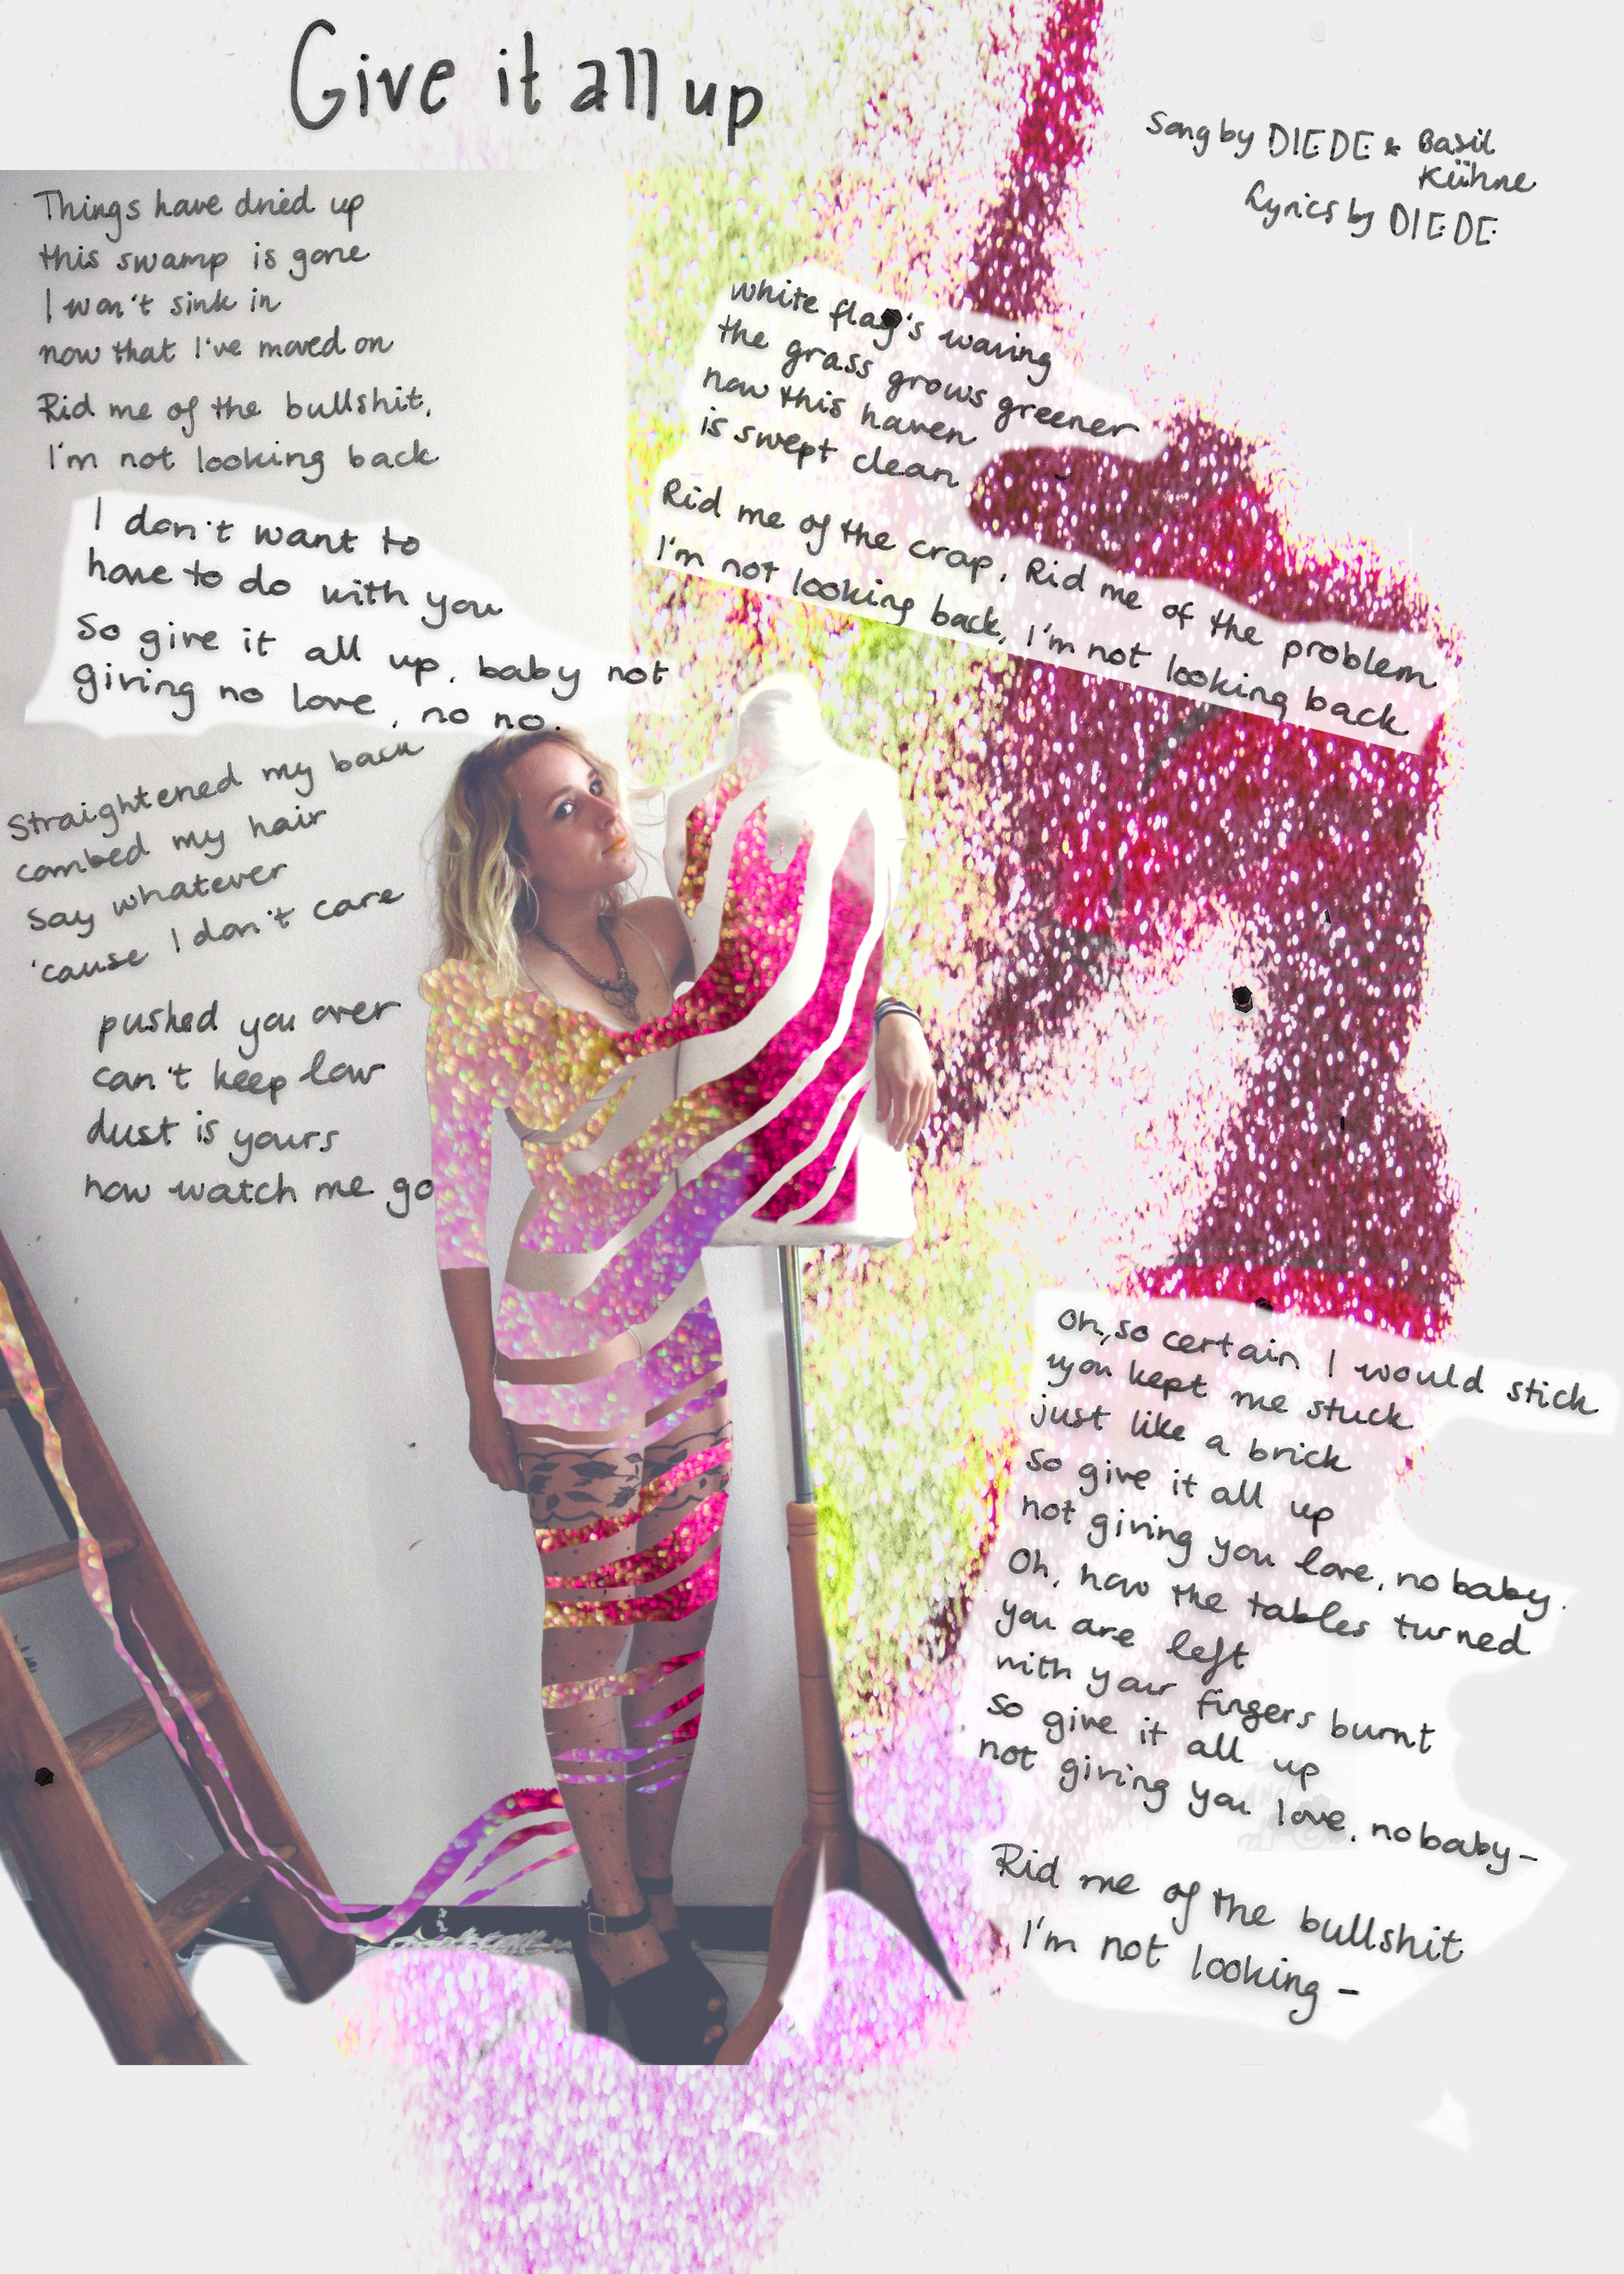 Give it all up
Song by DIEDE & Basil
Kühne
Lyrics by DIEDE
Things have dried up
this swamp is gone
I won't sink in
now that I've moved on
Rid me of the bullshit,
I'm not looking back
I don't want to
have to do with you
So give it all up, baby not
giving no love, no no.
Straightened my back
combed my hair
Say whatever
'cause I don't care
pushed you over
can't keep low
dust is yours
now watch me go
white flag's waving
the grass grows greener
now this haven
is swept clean
Rid me of the crap, Rid me of the problem
I'm not looking back, I'm not looking back
Oh, so certain I would stick
you kept me stuck
just like a brick
so give it all up
not giving you love, no baby.
Oh, how the tables turned
you are left
with your fingers burnt
so give it all up
not giving you love, no baby-
Rid me of the bullshit
I'm not looking -